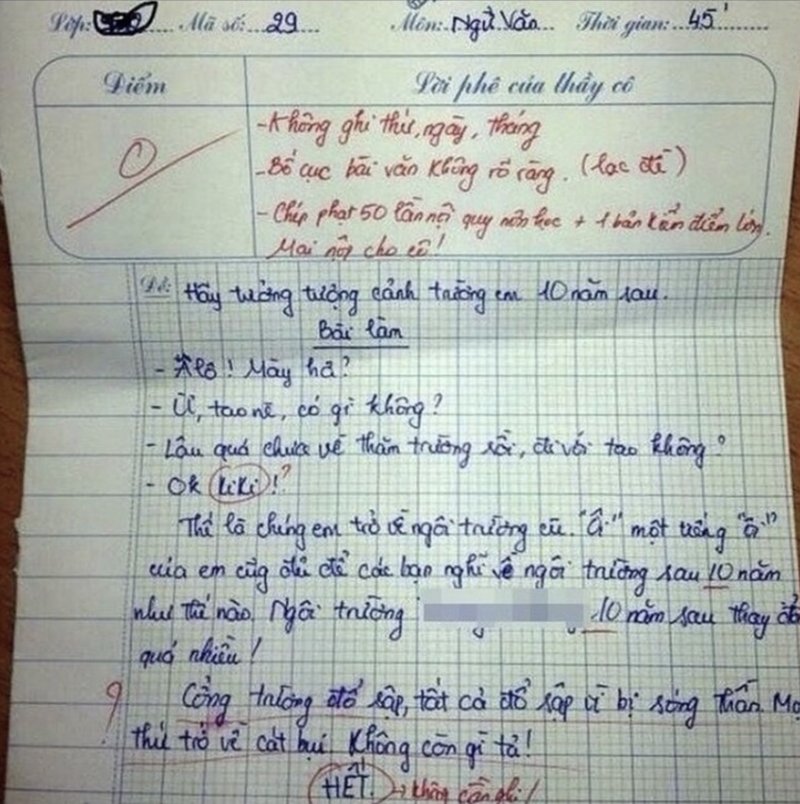 Lớp: Mã số: 29 Môn: Ngữ Văn Thời gian: 45'
Điểm Lời phê của thầy cô
0
- Không ghi thứ, ngày, tháng
- Bố cục bài văn không rõ ràng. (lạc đề)
- Chép phạt 50 lần nội quy môn học + 1 bản kiểm điểm lớn.
Mai nộp cho cô!
Đề: Hãy tưởng tượng cảnh trường em 10 năm sau.
Bài làm
- Alô! Mày hả?
- Ừ, tao nè, có gì không?
- Lâu quá chưa về thăm trường rồi, đi với tao không?
- Ok kiki!?
Thế là chúng em trở về ngôi trường cũ. "Ôi" một tiếng "ôi"
của em cũg đủ để các bạn nghĩ về ngôi trường sau 10 năm
như thế nào. Ngôi trường 10 năm sau thay đổ
quá nhiều!
? Cổng trường đổ sập, tất cả đổ sập vì bị sóng thần. Mọ
thứ trở về cát bụi không còn gì tả!
HẾT. → không cần ghi!